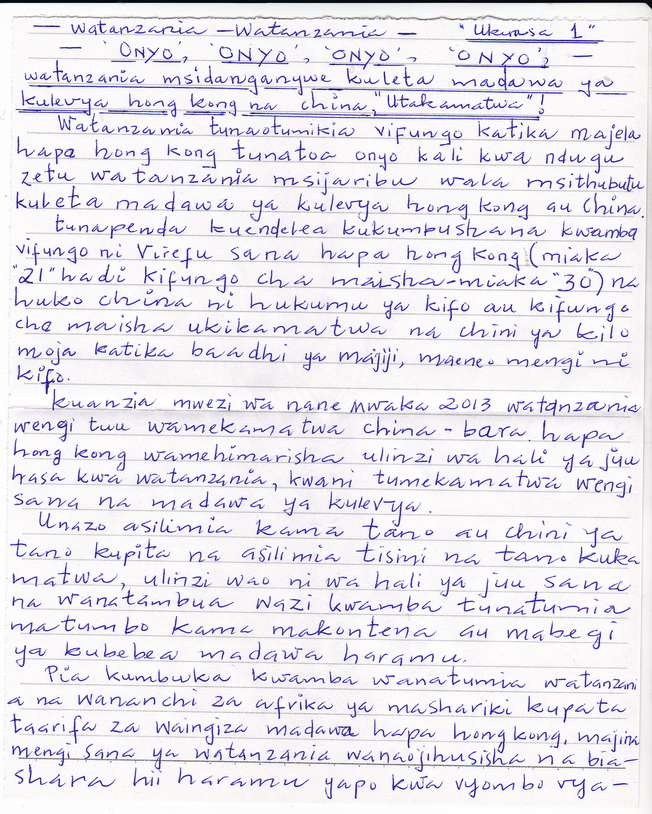 — watanzania – Watanzania – "Ukurasa 1"
— 'ONYO', 'ONYO', 'ONYO', 'ONYO', —
watanzania msidanganywe kuleta madawa ya
kulevya hong kong na china, "Utakamatwa"!
Watanzania tunaotumikia vifungo katika majela
hapa hong kong tunatoa onyo kali kwa ndugu
zetu watanzania msijaribu wala msithubutu
kuleta madawa ya kulevya hong kong au China.
tunapenda kuendelea kukumbushana kwamba
vifungo ni Virefu sana hapa hong Kong (miaka
"21" hadi Kifungo cha maisha–miaka "30") na
huko china ni hukumu ya kifo au kifungo
cha maisha ukikamatwa na chini ya kilo
moja katika baadhi ya majiji, maeneo mengi ni
kifo.
kuanzia mwezi wa nane mwaka 2013 watanzania
wengi tuu wamekamatwa china – bara. hapa
hong kong wamehimarisha ulinzi wa hali ya juu
hasa kwa watanzania, kwani tumekamatwa wengi
sana na madawa ya kulevya.
Unazo asilimia kama tano au chini ya
tano kupita na asilimia tisini na tano kuka
matwa, ulinzi wao ni wa hali ya juu sana
na wanatambua wazi kwamba tunatumia
matumbo kama makontena au mabegi
ya kubebea madawa haramu.
Pia kumbuka kwamba wanatumia watanzani
a na wananchi za afrika ya mashariki kupata
taarifa za waingiza madawa hapa hong kong, majina
mengi sana ya watanzania wanaojihusisha na bia–
shara hii haramu yapo kwa vyombo vya–